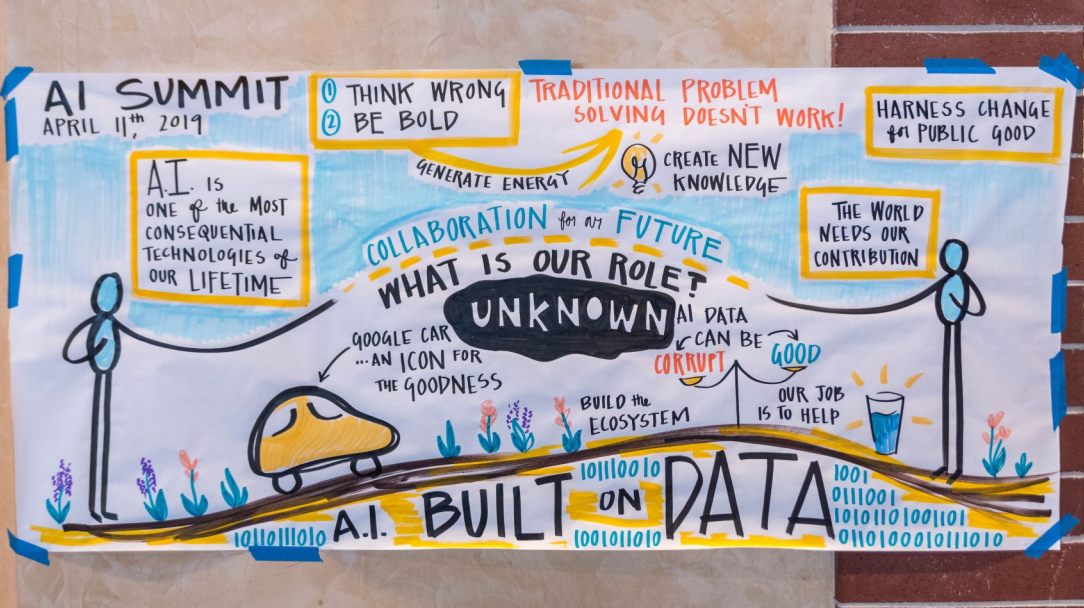 AI SUMMIT
APRIL 11th, 2019
① THINK WRONG
② BE BOLD
TRADITIONAL PROBLEM
SOLVING DOESN'T WORK!
HARNESS CHANGE
for PUBLIC GOOD
GENERATE ENERGY
CREATE NEW
KNOWLEDGE
A.I. IS
ONE of the MOST
CONSEQUENTIAL
TECHNOLOGIES of
OUR LIFETIME
COLLABORATION for our FUTURE
THE WORLD
NEEDS OUR
CONTRIBUTION
WHAT IS OUR ROLE?
UNKNOWN
GOOGLE CAR
...AN ICON FOR
THE GOODNESS
AI DATA
CAN BE
CORRUPT GOOD
BUILD the
ECOSYSTEM
OUR JOB
IS TO HELP
A.I. BUILT ON DATA
1011011010
101110010
1001011010
1001
0111001
1010110 1001101
01101000101011010